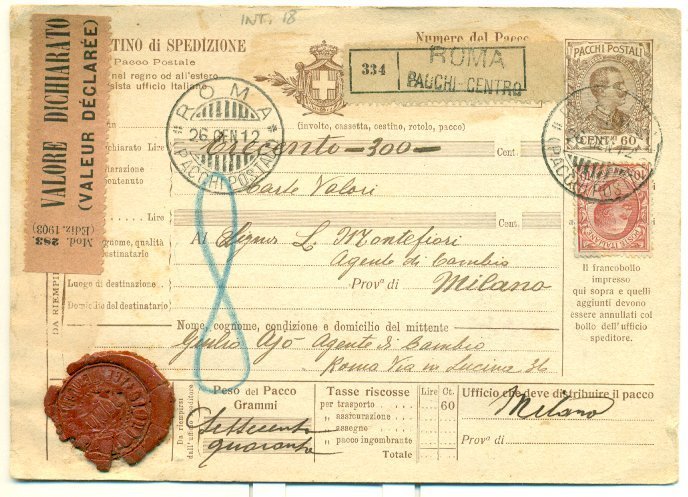 INT. 18
TINO di SPEDIZIONE
Pacco Postale
nel regno od all'estero
sista ufficio italiano
Numero del Pacco
334
ROMA
PACCHI-CENTRO
PACCHI POSTALI
CENT. 60
VALORE DICHIARATO
(VALEUR DÉCLARÉE)
Mod. 283
(Ediz. 1903)
ROMA
26 GEN 12
PACCHI POSTALI
(involto, cassetta, cestino, rotolo, pacco)
chiarato Lire
Trecento - 300 -
Cent.
Carte Valori
contenuto
Lire
Cent.
gnome, qualità
destinatario
Al Signor L. Montefiori
Agente di Cambio
Luogo di destinazione
Prov.ª di
Milano
Domicilio del destinatario
DA RIEMPI
Il francobollo
impresso
qui sopra e quelli
aggiunti devono
essere annullati col
bollo dell'ufficio
speditore.
Nome, cognome, condizione e domicilio del mittente
Giulio Ajò Agente di Cambio
Roma Via in Lucina 36
Da riempirsi
dall'uffizio speditore
Peso del Pacco
Grammi
Settecento
quaranta
Tasse riscosse
Lire
Ct.
per trasporto
60
" assicurazione
" assegno
" pacco ingombrante
Totale
Ufficio che deve distribuire il pacco
Milano
Prov.ª di